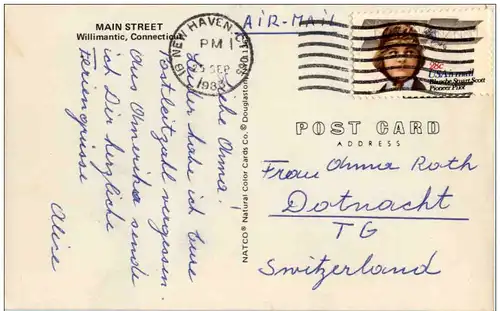 MAIN STREET
Willimantic, Connecticut
AIR-MAIL
NEW HAVEN, CT
PM
25 SEP
1983
28c
USAirmail
Blanche Stuart Scott
Pioneer Pilot
POST CARD
ADDRESS
NATCO® Natural Color Cards Co. ® Douglaston
Liebe Anna!
Leider habe ich Eure
Postleitzahl vergessen.
Aus Amerika sende
ich Dir herzliche
Feriengrüsse
Alice
Frau Anna Roth
Dotnacht
TG
Switzerland